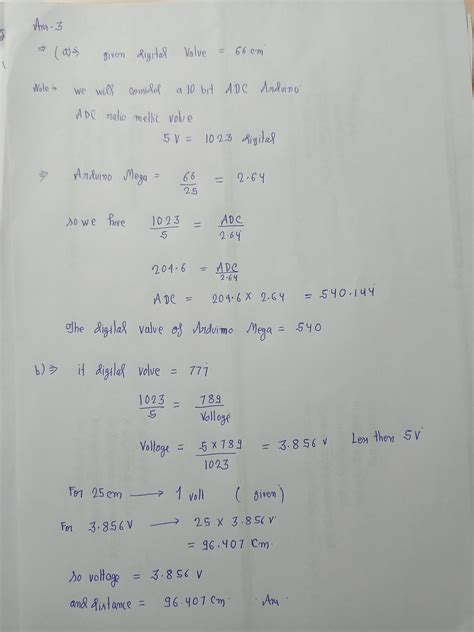 Ans-3
⇒ (a)⇒ given digital value = 66 cm
Note → we will consider a 10 bit ADC Arduino
ADC ratio metric value
5V = 1023 digital
⇒ Arduino Mega = 66/25 = 2.64
so we have 1023/5 = ADC/2.64
204.6 = ADC/2.64
ADC = 204.6 × 2.64 = 540.144
The digital value of Arduino Mega = 540
b) ⇒ if digital value =
1023/5 = 789/Voltage
Voltage = 5×789/1023 = 3.856 V Less then 5V
For 25cm → 1 volt (given)
For 3.856V → 25 × 3.856 V
= 96.407 Cm.
so voltage = 3.856 V
and distance = 96.407 cm Ans